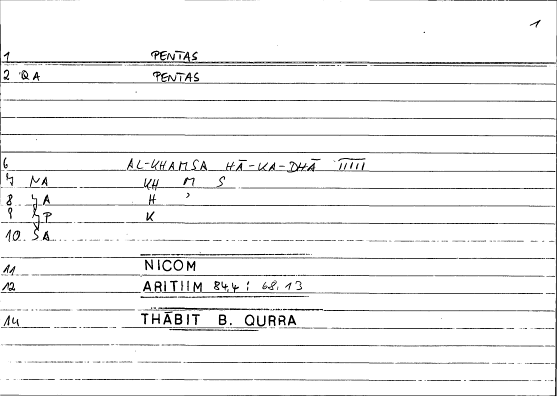 1
1 PENTAS
2 QA PENTAS
6 AL-KHAMSA HĀ-KA-DHĀ IIIII
7 NA KH M S
8 A H ʾ
9 P K
10 SA
11 NICOM
12 ARITHM 84,4 : 68,13
14 THĀBIT B. QURRA